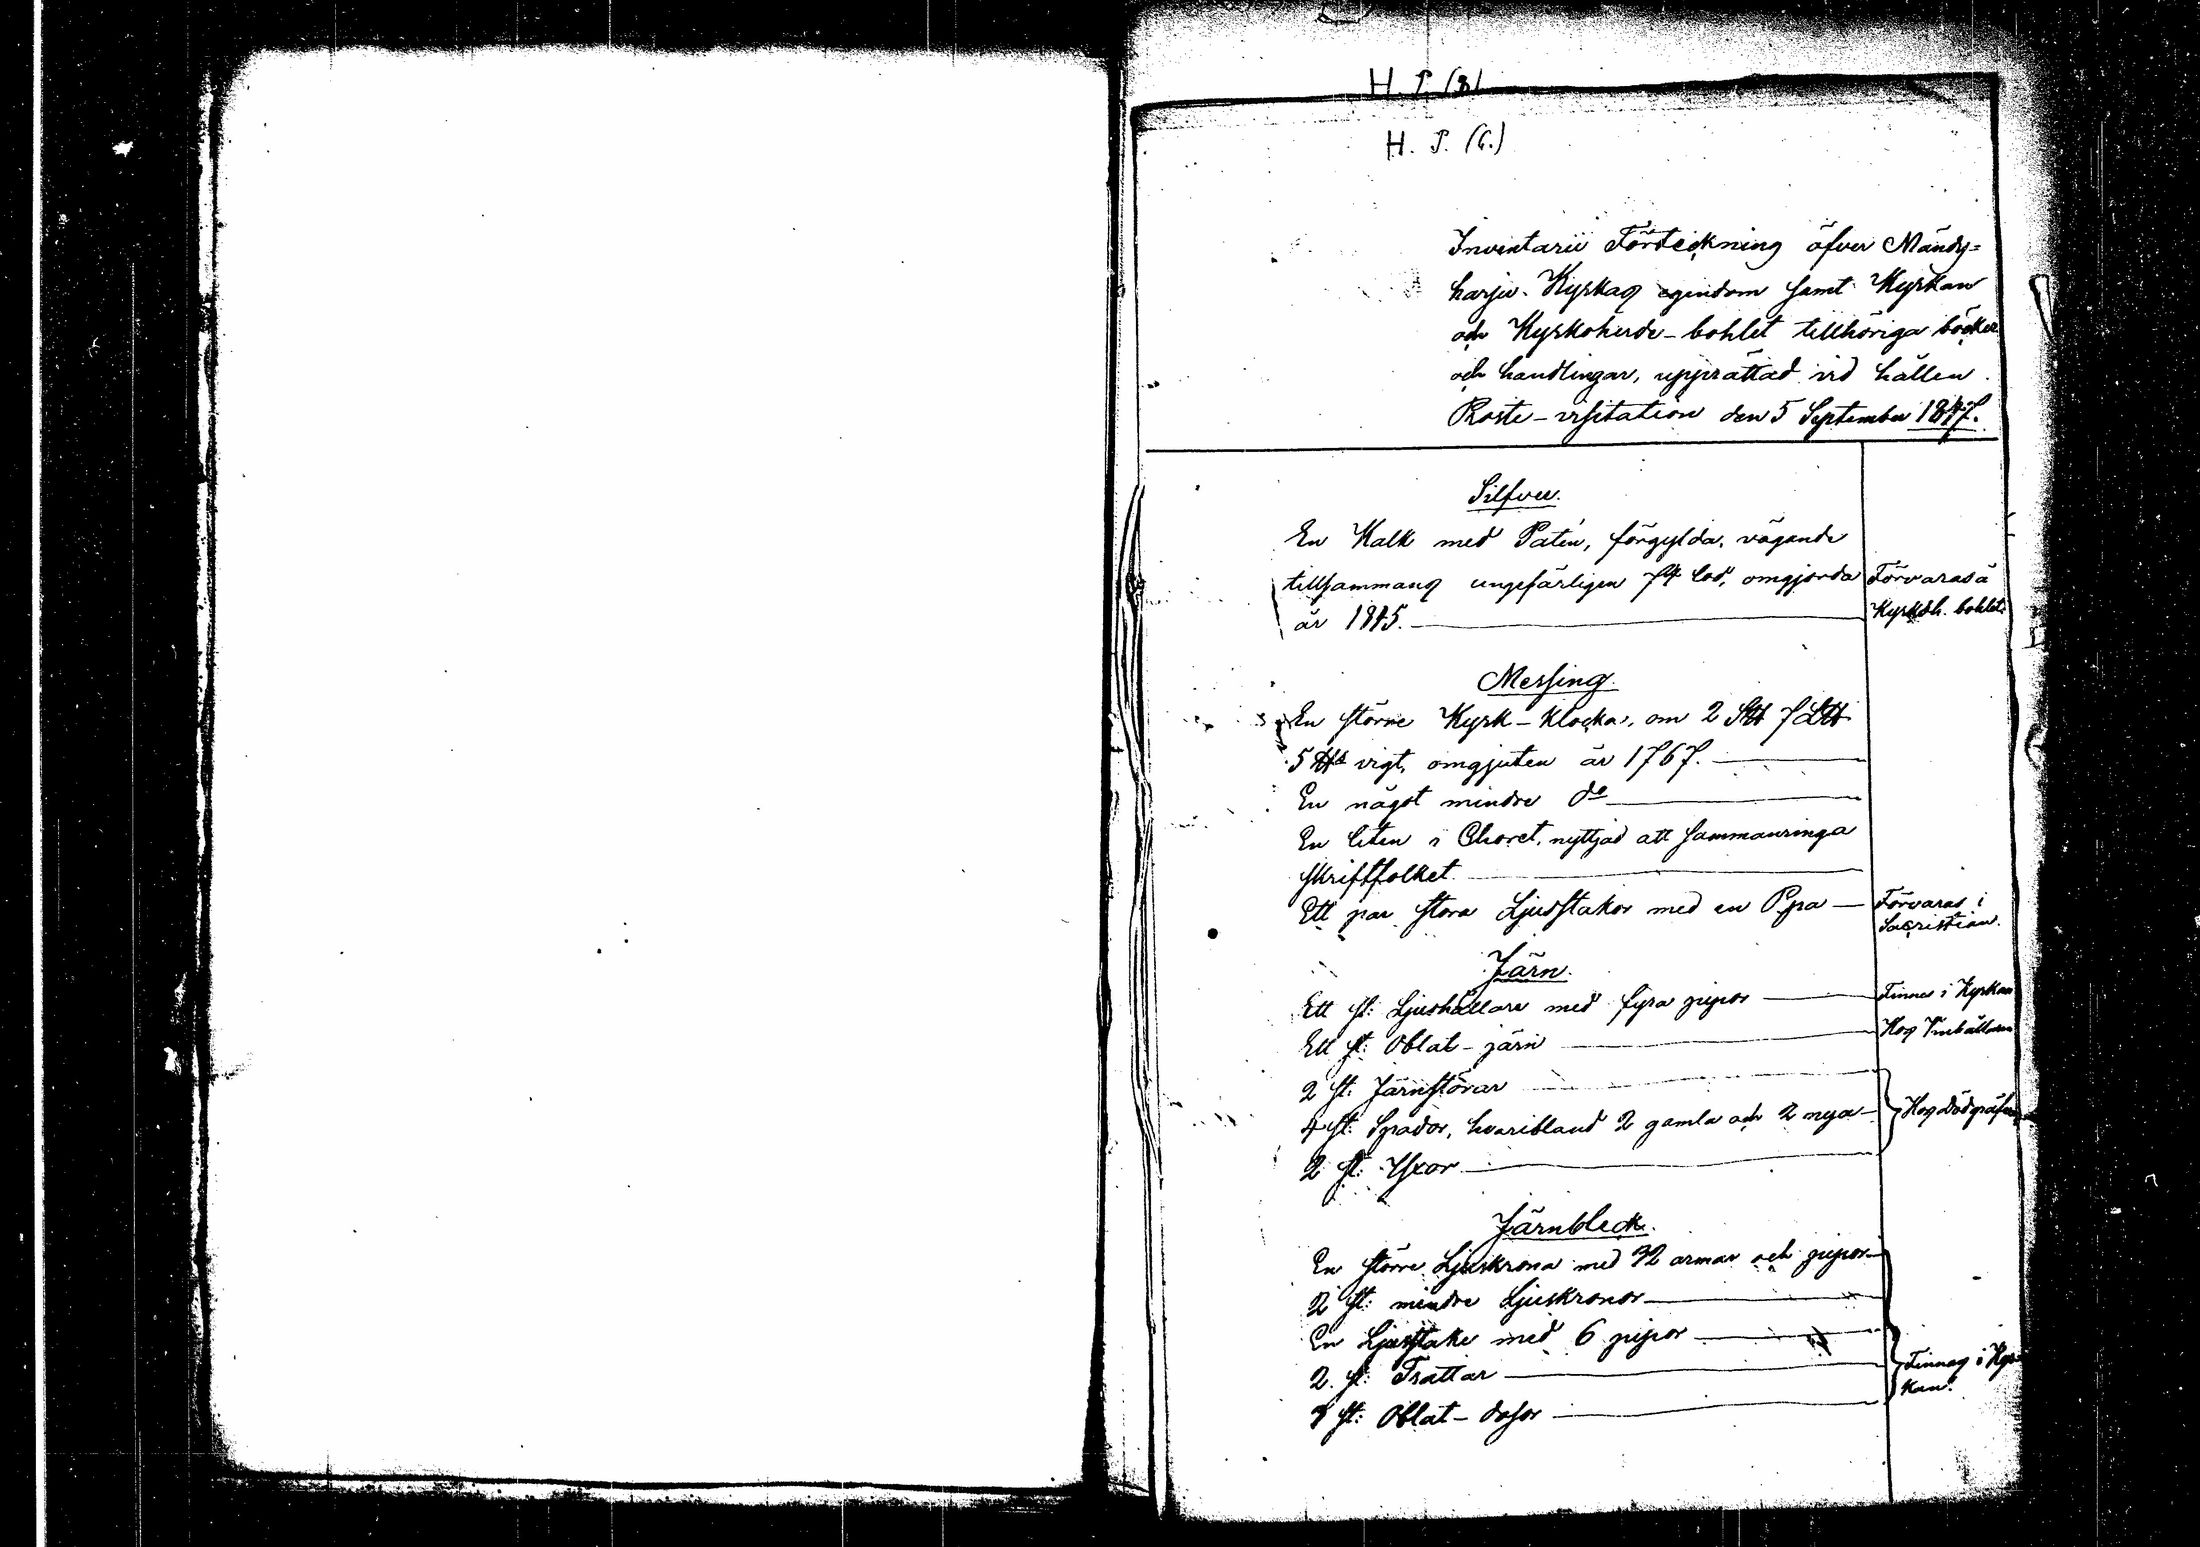 H. J. (8)
H. J. (6.)
Inventarii Förteckning öfver Mändy-
harju Kyrkas egendom samt Kyrkan
och Kyrkoherde-bohlet tillhöriga böcker
och handlingar, upprättad vid hållen
Proste-visitation den 5 September 1847.
Silfver.
En Kalk med Patén, förgylda, vägande
tillsammans ungefärligen 74 lod, omgjorda
år 1845.
Förvaras å
Kyrkoh. bohlet.
Messing.
En större Kyrk-klocka, om 2 S℔ 7 L℔
5 ℔s vigt, omgjuten år 1767.
En något mindre do
En liten i Choret, nyttjad att sammanringa
skriftfolket
Ett par stora Ljusstakar med en Pipa
Förvaras i
Sacristian.
Järn.
Ett st: Ljushållare med fyra pipor
Finnes i Kyrkan
Ett st: Oblat-järn
Hos
2 st: Järnstörar
4 st: Spador, hvaribland 2 gamla och 2 nya
2 st: Yxor
Hos Dödgräfv
Järnbleck.
En större Ljuskrona med 32 armar och pipor
2 st: mindre Ljuskronor
En Ljusstake med 6 pipor
2 st: Trattar
3 st: Oblat-dosor
Finnas i Kyr-
kan.